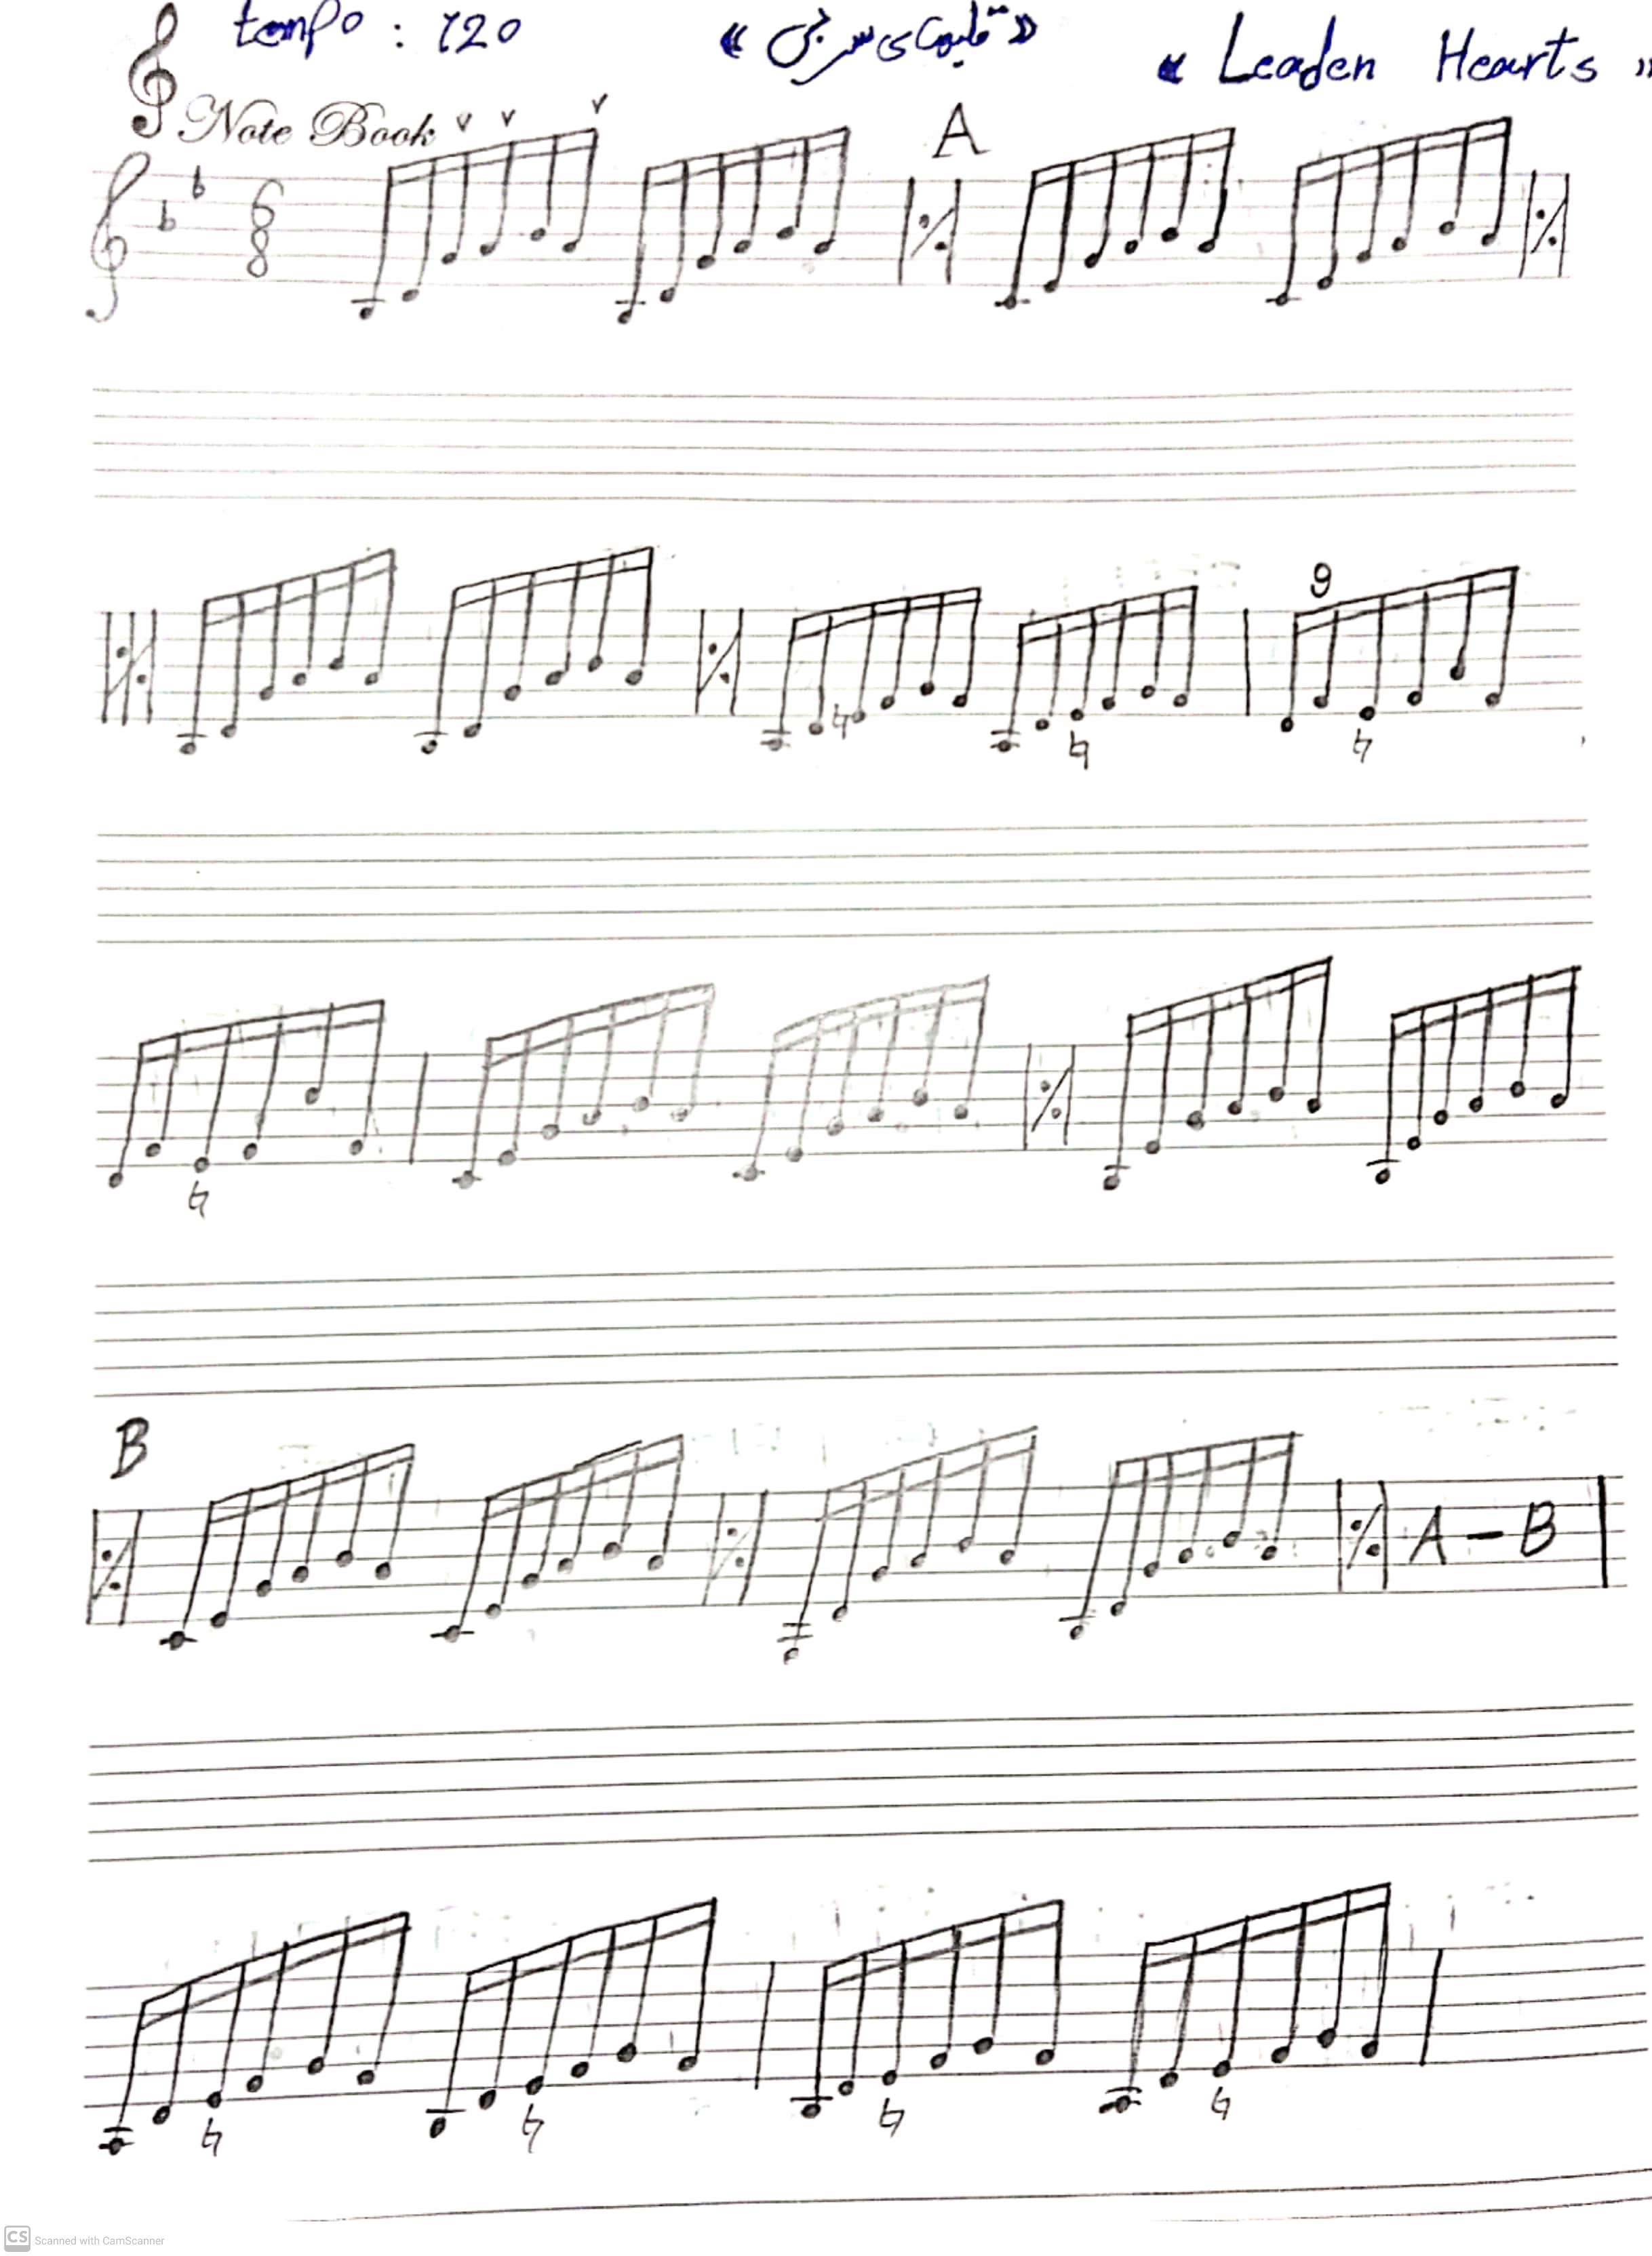 tempo : 120 « قلبهای سربی » « Leaden Hearts »
Note Book
A
6
8
9
B
A - B
CS Scanned with CamScanner